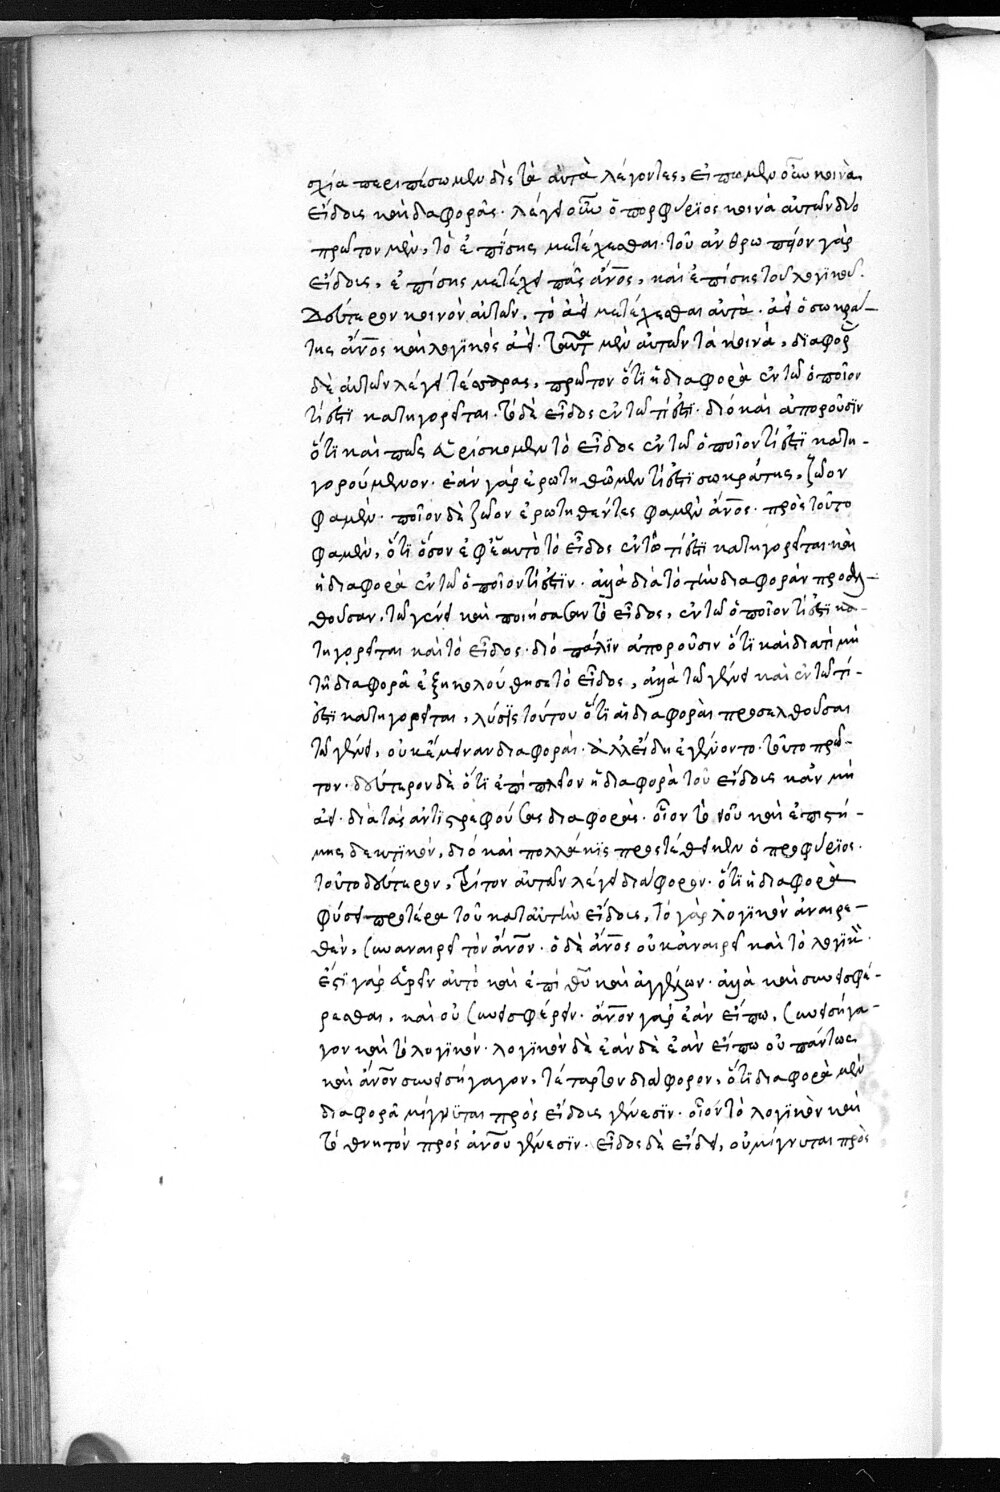 σχία περιπέσωμεν δὶς τὰ αὐτὰ λέγοντες, εἴπωμεν οὖν κοινὰ
εἴδους καὶ διαφορᾶς. λέγει οὖν ὁ πορφύριος κοινὰ αὐτῶν δύο
πρῶτον μὲν, τὸ ἐπίσης μετέχεσθαι. τοῦ ἀνθρωπείου γὰρ
εἴδους, ἐπίσης μετέχει πᾶς ἄνος, καὶ ἐπίσης τοῦ λογικοῦ.
Δεύτερον κοινὸν αὐτῶν, τὸ ἀεὶ μετέχεσθαι αὐτά. ἀεὶ ὁ σωκρά-
της ἄνος καὶ λογικὸς ἀεί. ταῦτα μὲν αὐτῶν τὰ κοινά, διαφορ
δὲ αὐτῶν λέγει τέσσαρας, πρῶτον ὅτι ἡ διαφορὰ ἐν τῶ ὁποῖον
τί ἐστι κατηγορεῖται. τὸ δὲ εἶδος ἐν τῶ τί ἐστι. διό καὶ ἀποροῦσιν
ὅτι καὶ πῶς εὑρίσκομεν τὸ εἶδος ἐν τῶ ὁποῖον τί ἐστι κατη-
γορούμενον. ἐὰν γὰρ ἐρωτηθῶμεν τί ἐστι σωκράτης, ζῶον
φαμέν. ποῖον δὲ ζῶον ἐρωτηθέντες φαμὲν ἄνος. πρὸς τοῦτο
φαμὲν, ὅτι ὅσον ἐφ' ἑαυτὸ τὸ εἶδος ἐν τῶ τί ἐστι κατηγορεῖται καὶ
ἡ διαφορὰ ἐν τῶ ὁποῖον τί ἐστιν. ἀλλὰ διὰ τὸ τὴν διαφορὰν προσελ-
θοῦσαν, τῶ γένει καὶ ποιήσασαν τὸ εἶδος, ἐν τῶ ὁποῖον τί ἐστι κα-
τηγορεῖται καὶ τὸ εἶδος. διό πάλιν ἀποροῦσιν ὅτι καὶ διατί μὴ
τῆ διαφορᾶ ἐξηκολούθησε τὸ εἶδος, ἀλλὰ τῶ γένει καὶ ἐν τῶ τί-
ἐστι κατηγορεῖται, λύσις τούτου ὅτι αἱ διαφοραὶ προσελθοῦσαι
τῶ γένει, οὐκ ἔμειναν διαφοραί. ἀλλ' εἴδη ἐγένοντο. τοῦτο πρῶ-
τον. δεύτερον δὲ ὅτι ἐπὶ πλεῖον ἡ διαφορὰ τοῦ εἴδους κἂν μὴ
ἀεί. διὰ τὰς ἀντιστρεφούσας διαφοράς. οἷον τὸ νοῦ καὶ ἐπιστή-
μης δεκτικόν, διό καὶ πολλάκις προστέθεικεν ὁ πορφύριος.
τοῦτο δεύτερον, τρίτον αὐτῶν λέγει διάφορον. ὅτι ἡ διαφορὰ
φύσει προτέρα τοῦ κατ' αὐτὴν εἴδους, τὸ γὰρ λογικὸν ἀναιρε-
θὲν, συναναιρεῖ τὸν ἄνον. ὁ δὲ ἄνος οὐκ ἀναιρεῖ καὶ τὸ λογικὸν.
ἔστι γὰρ εὑρεῖν αὐτὸ καὶ ἐπὶ θυ καὶ ἀγγέλων. ἀλλὰ καὶ συνεισφέ-
ρεσθαι, καὶ οὐ συνεισφέρειν. ἄνον γὰρ ἐὰν εἴπω, συνεισήγα-
γον καὶ τὸ λογικόν. λογικὸν δὲ ἐὰν δὲ ἐὰν εἴπω οὐ πάντως
καὶ ἄνον συνεισήγαγον, τέταρτον διάφορον, ὅτι διαφορὰ μὲν
διαφορᾶ μίγνυται πρὸς εἴδους γένεσιν. οἷον τὸ λογικὸν καὶ
τὸ θνητὸν πρὸς ἀνου γένεσιν. εἶδος δὲ εἴδει, οὐ μίγνυται πρὸς